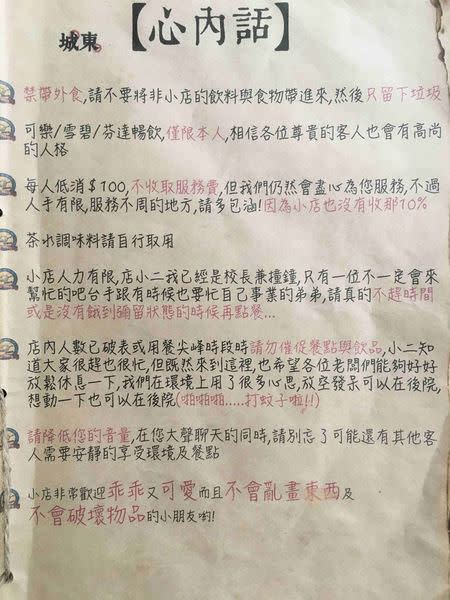 城東【心內話】
禁帶外食,請不要將非小店的飲料與食物帶進來,然後只留下垃圾
可樂/雪碧/芬達暢飲,僅限本人,相信各位尊貴的客人也會有高尚
的人格
每人低消$100,不收取服務費,但我們仍然會盡心為您服務,不過
人手有限,服務不周的地方,請多包涵!因為小店也沒有收那10%
茶水調味料請自行取用
小店人力有限,店小二我已經是校長兼撞鐘,只有一位不一定會來
幫忙的吧台手跟有時候也要忙自己事業的弟弟,請真的不趕時間
或是沒有餓到彌留狀態的時候再點餐...
店內人數已破表或用餐尖峰時段時請勿催促餐點與飲品,小二知
道大家很趕也很忙,但既然來到這裡,也希望各位老闆們能夠好好
放鬆休息一下,我們在環境上用了很多心思,放空發呆可以在後院,
想動一下也可以在後院(啪啪啪.....打蚊子啦!!)
請降低您的音量,在您大聲聊天的同時,請別忘了可能還有其他客
人需要安靜的享受環境及餐點
小店非常歡迎乖乖又可愛而且不會亂畫東西及
不會破壞物品的小朋友喲!